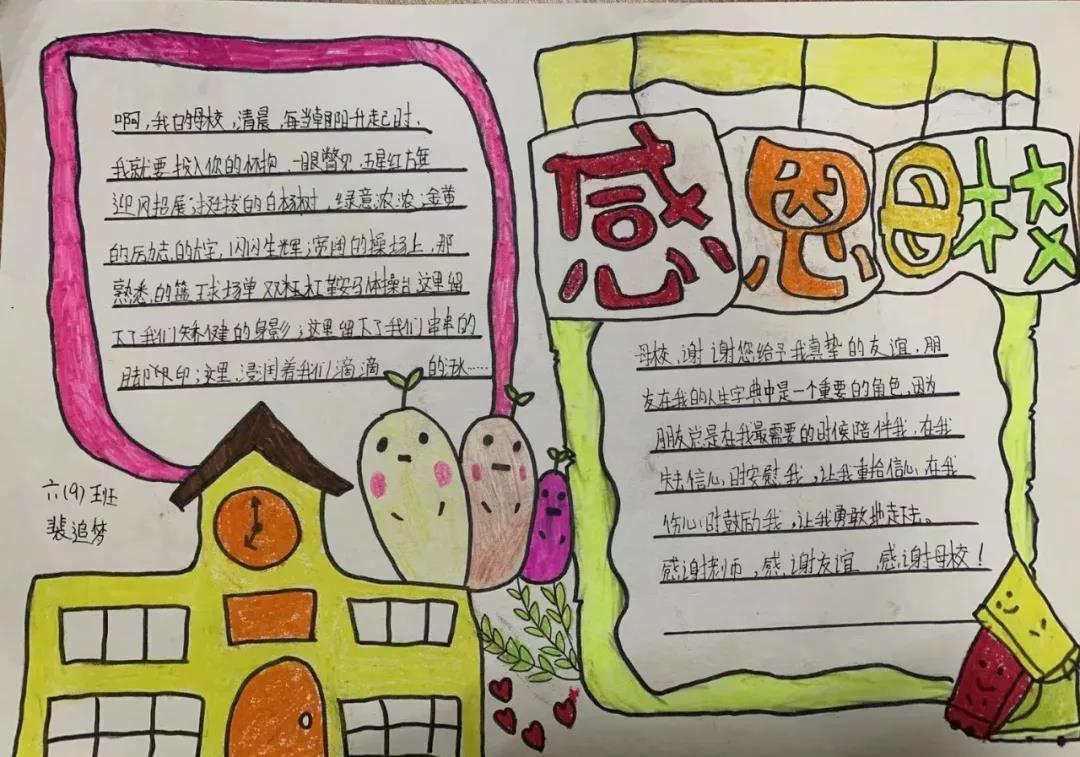 啊，我的母校，清晨，每当朝阳升起时，
我就要投入你的怀抱，一眼瞥见，五星红旗
迎风招展；挺拔的白杨树，绿意浓浓；金黄
的励志的大字，闪闪生辉；宽阔的操场上，那
熟悉的篮球场单双杠鞍马体操台这里留
下了我们矫健的身影；这里留下了我们串串的
脚印；这里，浸润着我们滴滴 的汗水……
六(9)班
裴追梦
感恩母校
母校，谢谢您给予我真挚的友谊，朋
友在我的人生字典中是一个重要的角色，因为
朋友总是在我最需要的时候陪伴我，在我
失去信心时安慰我，让我重拾信心，在我
伤心时鼓励我，让我勇敢地走下去。
感谢老师，感谢友谊，感谢母校！